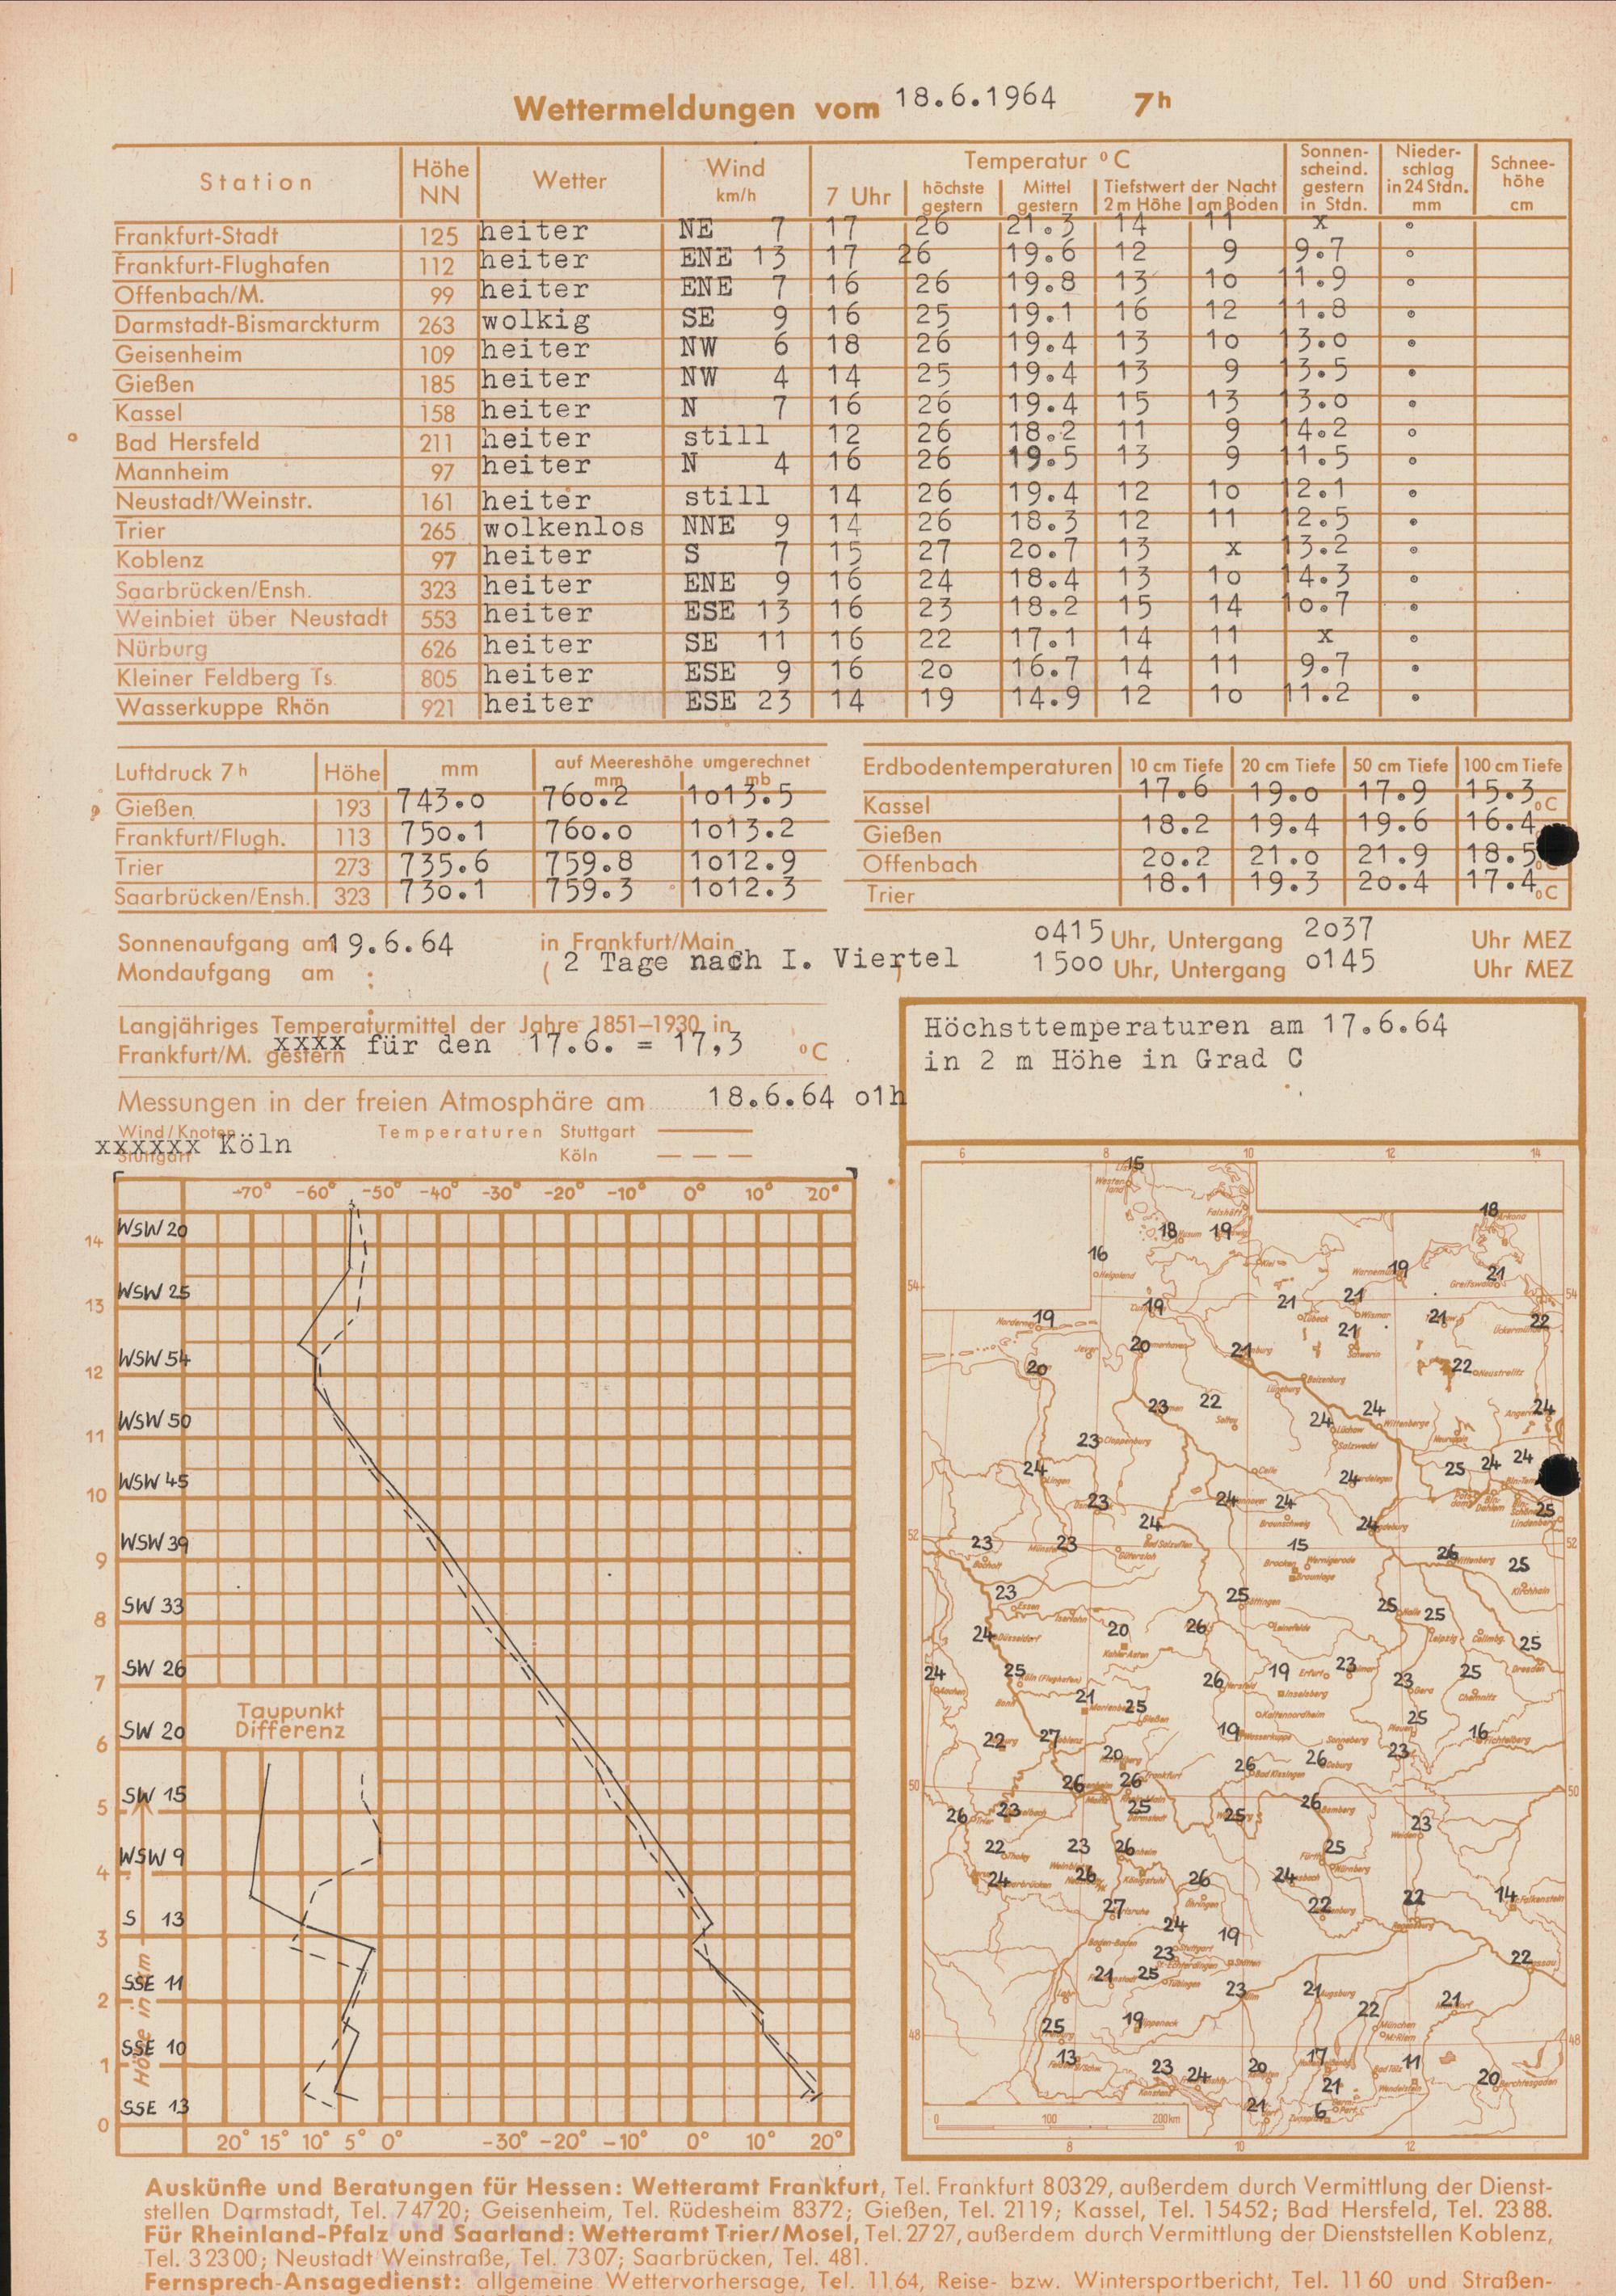 Wettermeldungen vom 18.6.1964 7h
Station Höhe NN Wetter Wind km/h Temperatur °C 7 Uhr höchste gestern Mittel gestern Tiefstwert der Nacht 2m Höhe am Boden Sonnen-scheind. gestern in Stdn. Nieder-schlag in 24 Stdn. mm Schnee-höhe cm
Frankfurt-Stadt 125 heiter NE 7 17 26 21.3 14 11 x
Frankfurt-Flughafen 112 heiter ENE 13 17 26 19.6 12 9 9.7
Offenbach/M. 99 heiter ENE 7 16 26 19.8 13 10 11.9
Darmstadt-Bismarckturm 263 wolkig SE 9 16 25 19.1 16 12 11.8
Geisenheim 109 heiter NW 6 18 26 19.4 13 10 13.0
Gießen 185 heiter NW 4 14 25 19.4 13 9 13.5
Kassel 158 heiter N 7 16 26 19.4 15 13 13.0
Bad Hersfeld 211 heiter still 12 26 18.2 11 9 14.2
Mannheim 97 heiter N 4 16 26 19.5 13 9 11.5
Neustadt/Weinstr. 161 heiter still 14 26 19.4 12 10 12.1
Trier 265 wolkenlos NNE 9 14 26 18.3 12 11 12.5
Koblenz 97 heiter S 7 15 27 20.7 13 x 13.2
Saarbrücken/Ensh. 323 heiter ENE 9 16 24 18.4 13 10 14.3
Weinbiet über Neustadt 553 heiter ESE 13 16 23 18.2 15 14 10.7
Nürburg 626 heiter SE 11 16 22 17.1 14 11 x
Kleiner Feldberg Ts. 805 heiter ESE 9 16 20 16.7 14 11 9.7
Wasserkuppe Rhön 921 heiter ESE 23 14 19 14.9 12 10 11.2
Luftdruck 7h Höhe mm auf Meereshöhe umgerechnet mm mb
Gießen 193 743.0 760.2 1013.5
Frankfurt/Flugh. 113 750.1 760.0 1013.2
Trier 273 735.6 759.8 1012.9
Saarbrücken/Ensh. 323 730.1 759.3 1012.3
Erdbodentemperaturen 10 cm Tiefe 20 cm Tiefe 50 cm Tiefe 100 cm Tiefe
Kassel 17.6 19.0 17.9 15.3 °C
Gießen 18.2 19.4 19.6 16.4
Offenbach 20.2 21.0 21.9 18.5 °C
Trier 18.1 19.3 20.4 17.4 °C
Sonnenaufgang am 19.6.64 in Frankfurt/Main 0415 Uhr, Untergang 2037 Uhr MEZ
Mondaufgang am : ( 2 Tage nach I. Viertel ) 1500 Uhr, Untergang 0145 Uhr MEZ
Langjähriges Temperaturmittel der Jahre 1851–1930 in
Frankfurt/M. gestern xxxx für den 17.6. = 17,3 °C
Messungen in der freien Atmosphäre am 18.6.64 01h
Wind/Knoten Temperaturen Stuttgart
Stuttgart xxxxxx Köln Köln
-70° -60° -50° -40° -30° -20° -10° 0° 10° 20°
14 WSW 20
13 WSW 25
12 WSW 54
11 WSW 50
10 WSW 45
9 WSW 39
8 SW 33
7 SW 26
Taupunkt
Differenz
6 SW 20
5 SW 15
4 WSW 9
3 S 13
2 SSE 11
1 SSE 10
0 SSE 13
Höhe in km
20° 15° 10° 5° 0° -30° -20° -10° 0° 10° 20°
Höchsttemperaturen am 17.6.64
in 2 m Höhe in Grad C
6 8 10 12 14
15
18
18 19
16 Helgoland
19 21 Greifswald
54 54
19 19 21 21 21 22
Norderney Lübeck Wismar
21 Schwerin
20 20 21 22 Neustrelitz
Boizenburg
Lüneburg
23 22 24 24 Wittenberge 24
Soltau Lüchow
23 Cloppenburg Salzwedel
24 Lingen Celle 24 25 24 24
23 24 24 25
Braunschweig Lindenberg
52 24 24 52
23 Bocholt Münster 23 Bad Salzuflen 15 26 Wittenberg 25
Gütersloh Brocken Wernigerode
Braunlage Kirchhain
23 Essen 25 Göttingen 25 Halle 25
Iserlohn
24 Düsseldorf 20 26 Leinefelde Leipzig 25
Kahler Asten Dresden
24 Aachen 25 Köln (Flughafen) 26 19 Erfurt 23 23 Gera 25 Chemnitz
Bonn 21 25 Gießen Inselsberg
Kaltennordheim 25
22 27 19 Wasserkuppe Sonneberg Plauen 16 Fichtelberg
20 26 Bad Kissingen 26 Coburg 23
50 26 26 Frankfurt 50
26 Trier 23 25 Darmstadt 25 26 Bamberg 23 Weiden
22 Tholey 23 26 Fürth 25 Nürnberg
24 Saarbrücken 26 Königstuhl 26 Öhringen 24 14 Falkenstein
27 Karlsruhe 22 22
24 19
Baden-Baden 23 Stuttgart Stötten 22 Passau
21 25 Tübingen 23 Ulm 21 Augsburg 21
Lahr 22
48 25 19 München 48
13 23 24 20 17 11 20 Berchtesgaden
Konstanz Wendelstein
21 21
6
0 100 200km
8 10 12
Auskünfte und Beratungen für Hessen: Wetteramt Frankfurt, Tel. Frankfurt 80329, außerdem durch Vermittlung der Dienst-
stellen Darmstadt, Tel. 74720; Geisenheim, Tel. Rüdesheim 8372; Gießen, Tel. 2119; Kassel, Tel. 15452; Bad Hersfeld, Tel. 2388.
Für Rheinland-Pfalz und Saarland: Wetteramt Trier/Mosel, Tel. 2727, außerdem durch Vermittlung der Dienststellen Koblenz,
Tel. 32300; Neustadt Weinstraße, Tel. 7307; Saarbrücken, Tel. 481.
Fernsprech-Ansagedienst: allgemeine Wettervorhersage, Tel. 1164, Reise- bzw. Wintersportbericht, Tel. 1160 und Straßen-